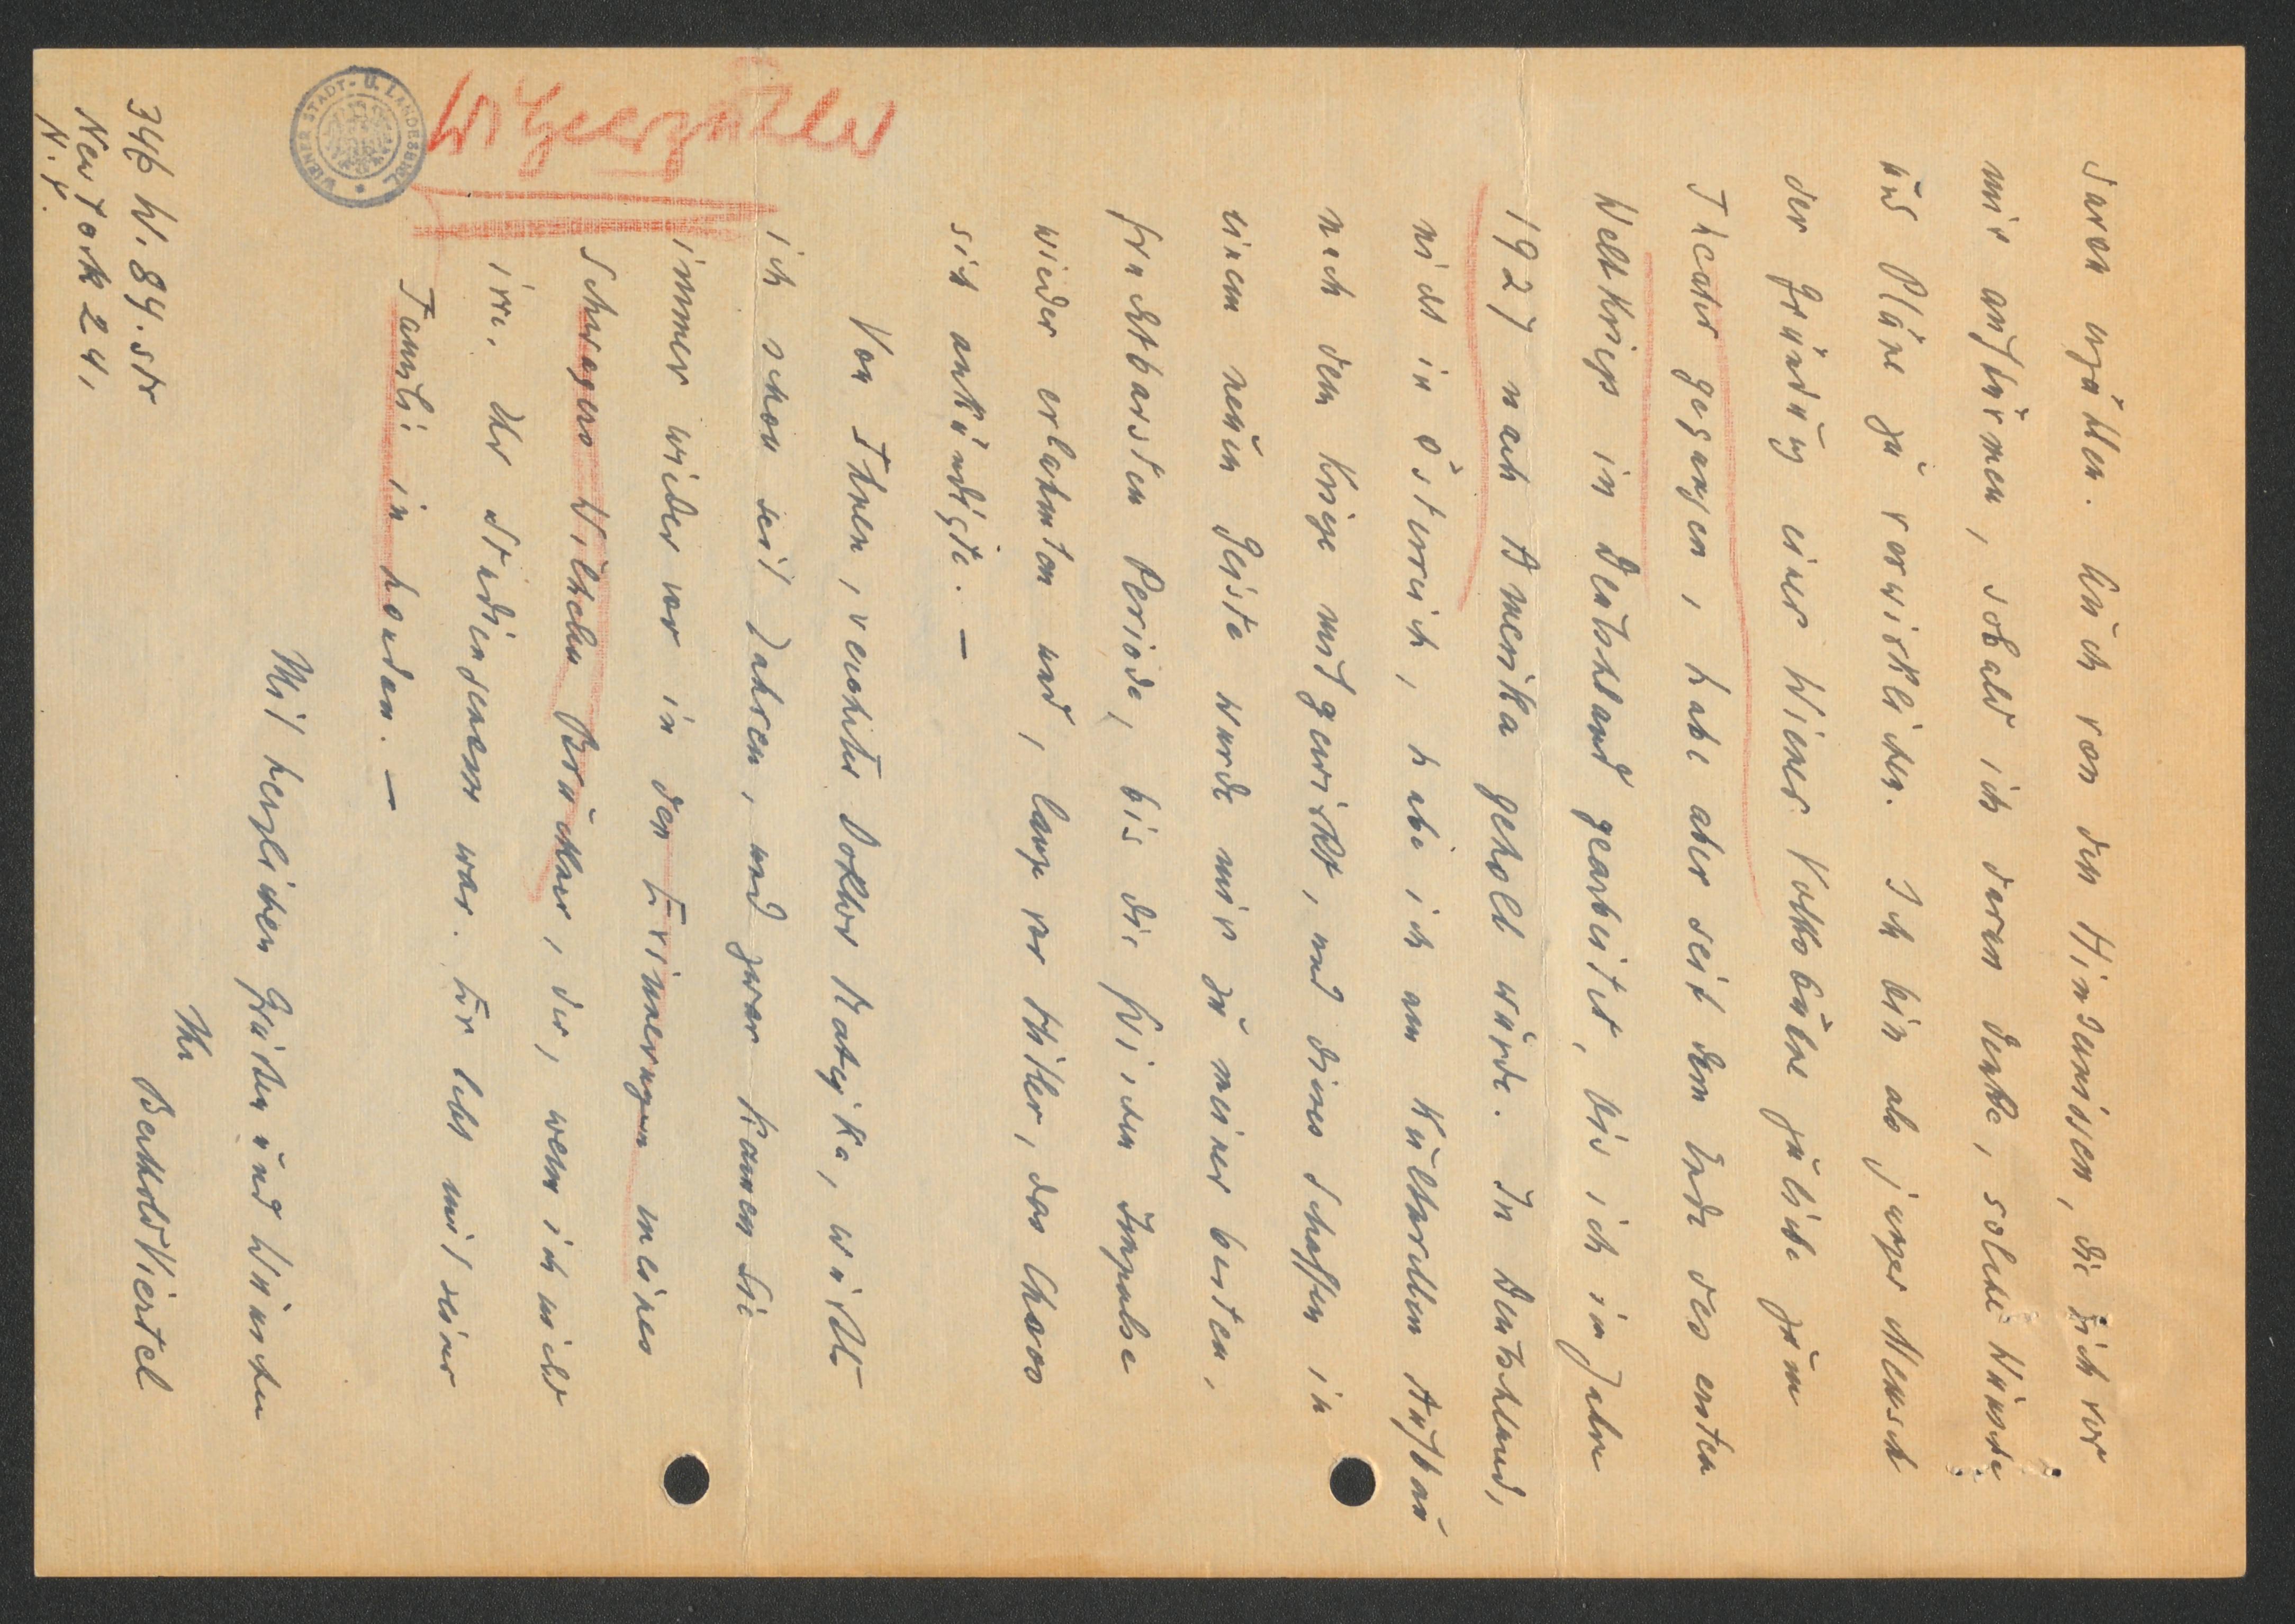 davon erzählen. Auch von den Hindernissen, die sich vor
mir auftürmen, sobald ich daran denke, solche Wünsche
und Pläne zu verwirklichen. Ich bin als junger Mensch
der Gründung einer Wiener Volksbühne zuliebe zum
Theater gegangen, habe aber seit dem Ende des ersten
Weltkriegs in Deutschland gearbeitet, bis ich im Jahre
1927 nach Amerika geholt wurde. In Deutschland,
nicht in Österreich, habe ich am kulturellen Aufbau
nach dem Kriege mitgewirkt, und dieses Schaffen in
einem neuen Geiste wurde mir zu meiner besten,
fruchtbarsten Periode, bis die frischen Impulse
wieder erlahmten und, lange vor Hitler, das Chaos
sich ankündigte. —
Von Ihnen, verehrter Doktor Matejka, wusste
ich schon seit Jahren, und zwar kamen Sie
immer wieder vor in den Erinnerungen meines
Schwagers Wilhelm Bruckner, der, wenn ich nicht
irre, Ihr Studiengenosse war. Er lebt mit seiner
Family in London. —
Mit herzlichen Grüßen und Wünschen
Ihr
Berthold Viertel
346 W. 84. Str
New York 24,
N.Y.
Witzeerzähler
WIENER STADT- U. LANDESBIBL.